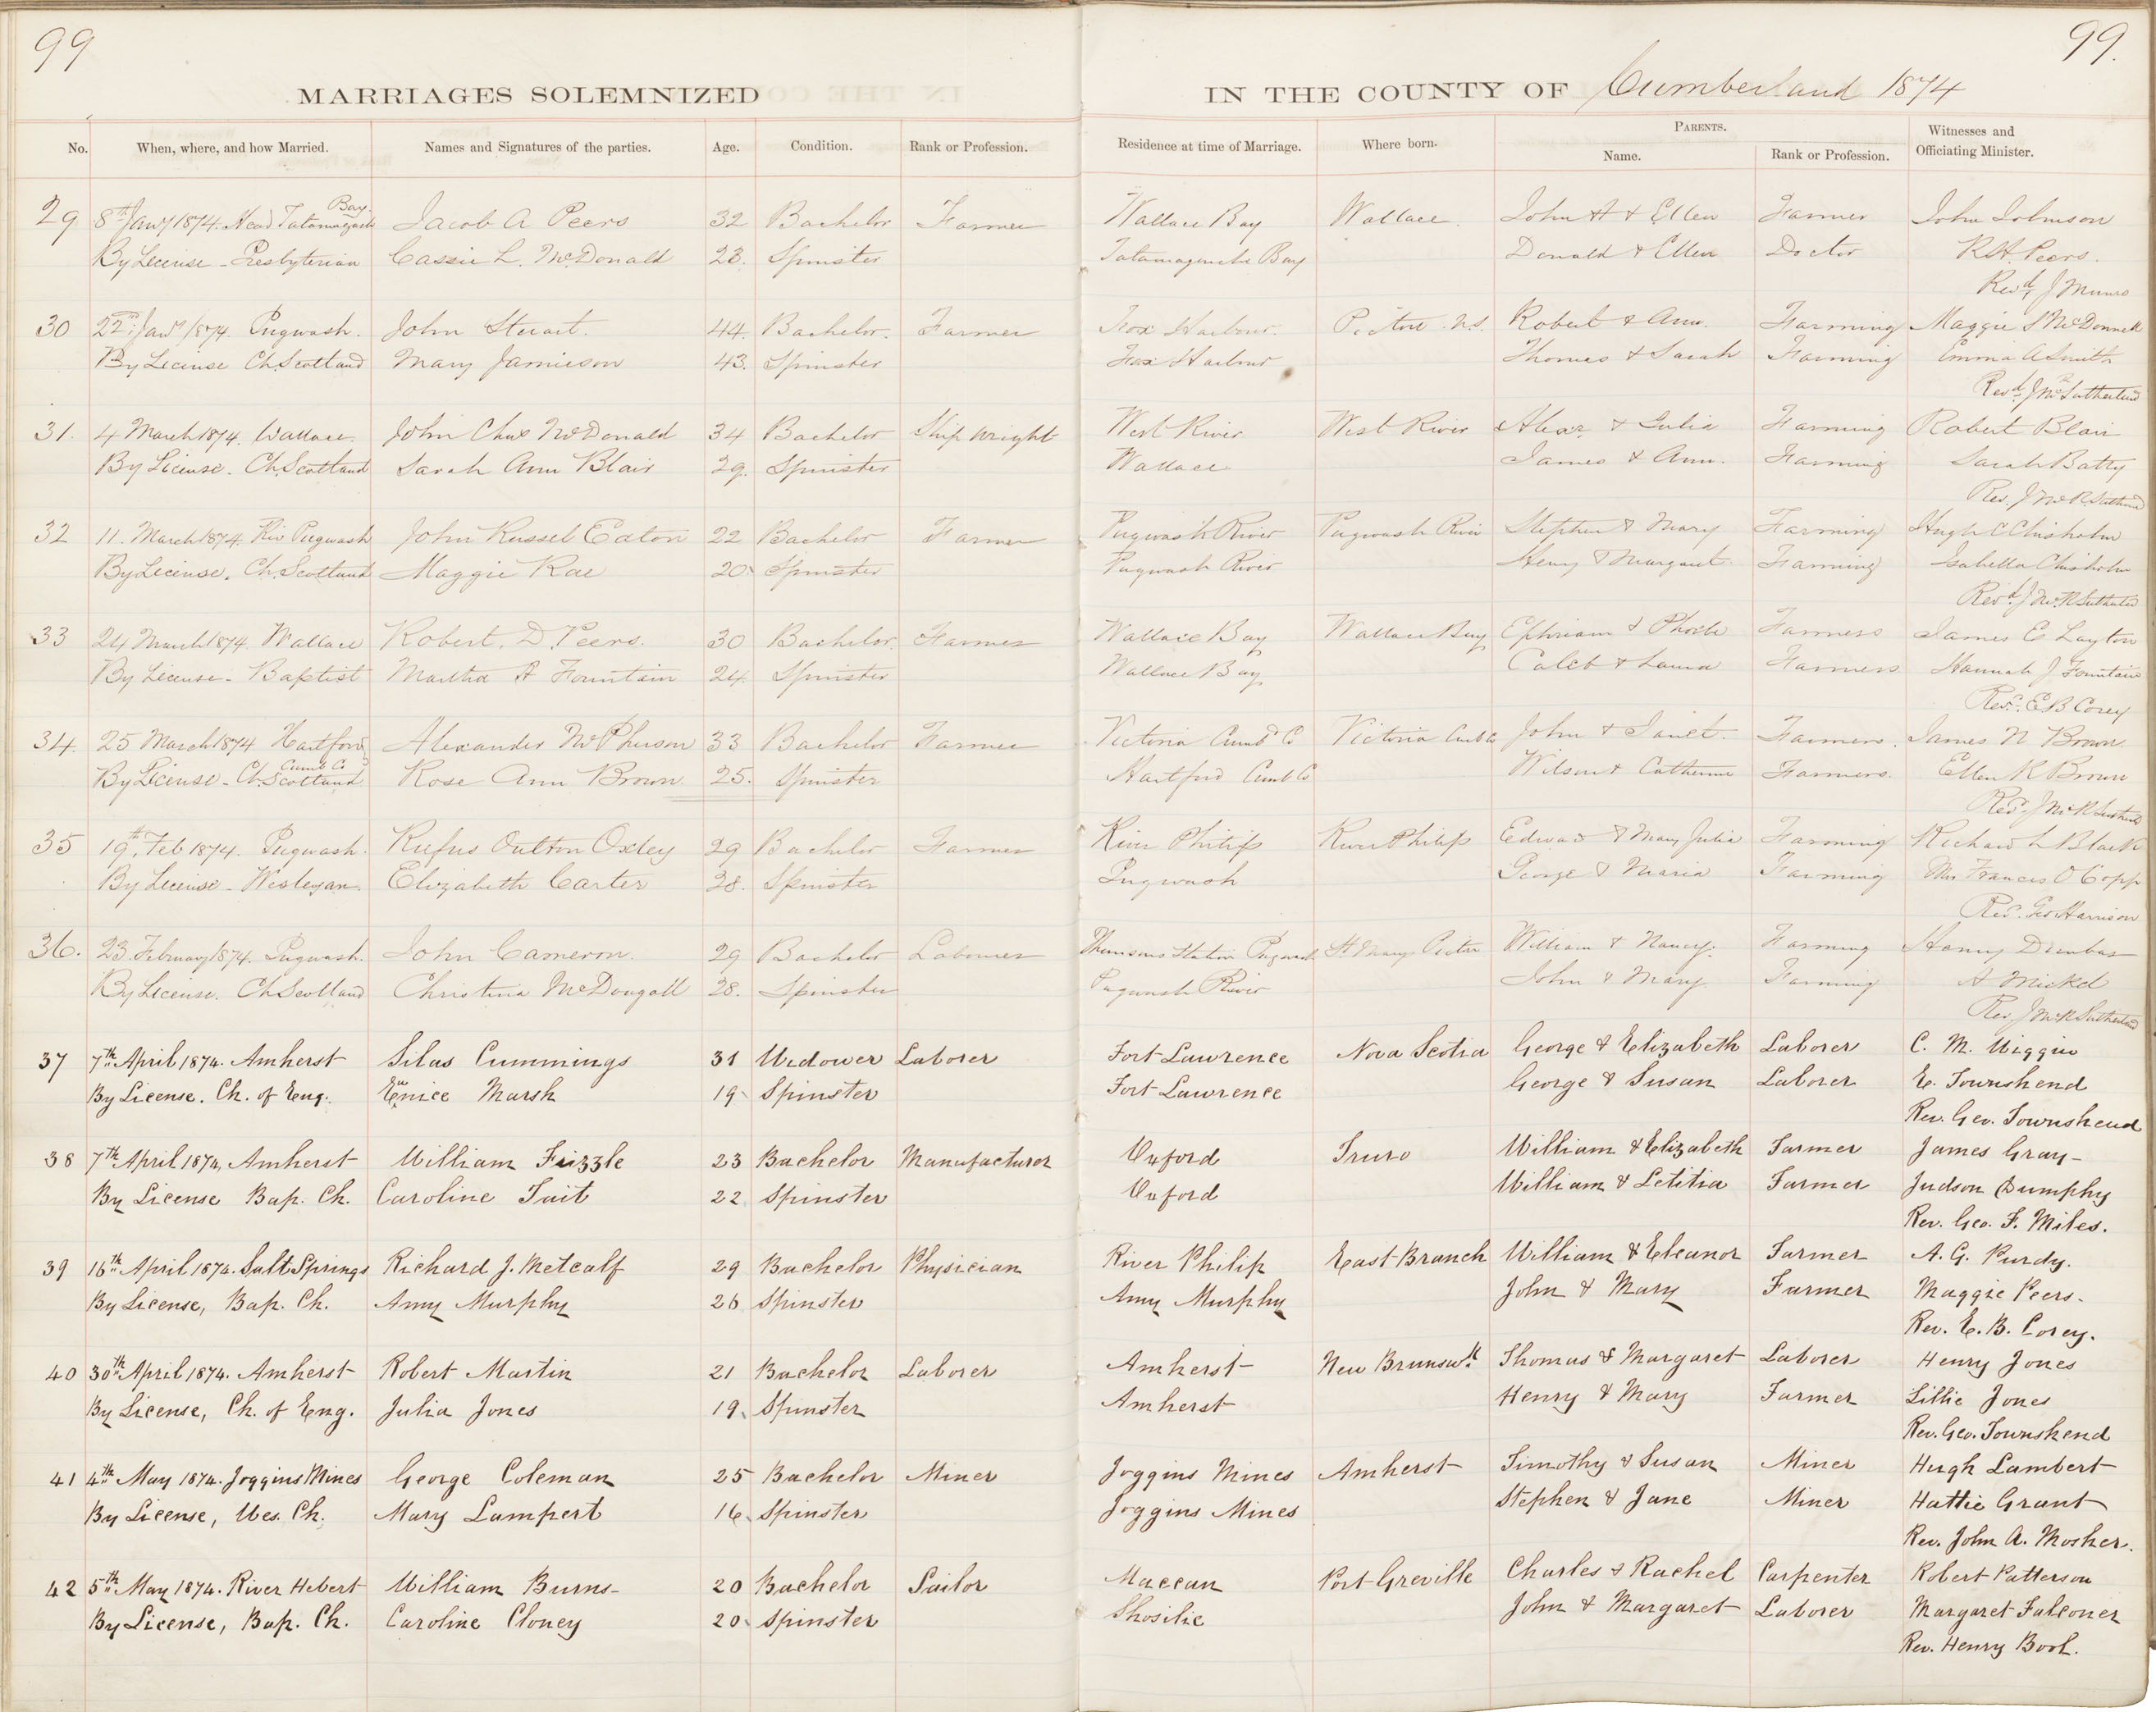 99
99.
MARRIAGES SOLEMNIZED
IN THE COUNTY OF Cumberland 1874
No. When, where, and how Married. Names and Signatures of the parties. Age. Condition. Rank or Profession. Residence at time of Marriage. Where born. PARENTS. Name. Rank or Profession. Witnesses and Officiating Minister.
Bay
29 8th Jany 1874. Head Tatamagouche Jacob A Peers 32 Bachelor Farmer Wallace Bay Wallace. John H & Ellen Farmer John Johnson
By License - Presbyterian Cassie L. McDonald 23. Spinster Tatamagouche Bay Donald & Ellen Doctor R.H. Peers.
Revd J Munro
30 22nd Jany 1874. Pugwash. John Stuart. 44. Bachelor. Farmer Fox Harbour Pictou N.S. Robert & Ann. Farming Maggie S McDonnell
By License Ch. Scotland Mary Jamieson 43. Spinster Fox Harbour Thomas & Sarah Farming Emma A Smith
Revd J McR Sutherland
31. 4 March 1874. Wallace. John Chas McDonald 34 Bachelor Ship wright West River West River Alexr & Julia Farming Robert Blair
By License. Ch. Scotland Sarah Ann Blair 29. Spinster Wallace James & Ann. Farming Sarah Batty
Rev. J McR Sutherland
32 11. March 1874. Riv Pugwash John Russel Eaton 22 Bachelor Farmer Pugwash River Pugwash River Stephen & Mary Farming Hugh C Chisholm
By License. Ch. Scotland Maggie Rae 20. Spinster Pugwash River Henry & Margaret Farming Isabella Chisholm
Revd. J McR Sutherland
33 24 March 1874. Wallace Robert. D. Peers. 30 Bachelor Farmer Wallace Bay Wallace Bay Ephriam & Phoebe Farmers James E Layton
By License - Baptist Martha A Fountain 24. Spinster Wallace Bay Caleb & Laura Farmers Hannah J Fountain
Revd. E B Corey
34. 25 March 1874 Hartford Alexander McPherson 33 Bachelor Farmer Victoria Cumbd Co Victoria Cumb Co John & Janet. Farmers. James N Brown
Cumb Co
By License - Ch. Scotland Rose Ann Brown. 25. Spinster Hartford Cumb Co Wilson & Catherine Farmers. Ellen R Brown
Revd. J McR Sutherland
35 19th Feb 1874. Pugwash. Rufus Oulton Oxley 29 Bachelor Farmer River Philip River Philip Edward & Mary Julia Farming Richard L Black
By License - Wesleyan. Elizabeth Carter 28. Spinster Pugwash George & Maria Farming Mrs Frances O Copp
Revd. Geo Harrison
36. 23 February 1874. Pugwash. John Cameron. 29 Bachelor Labourer Thomsons Station Pugwash St Marys Pictou William & Nancy. Farming
By License. Ch Scotland Christina McDougall 28. Spinster Pugwash River John & Mary Farming A Mickel
Rev. J McR Sutherland
37 7th April 1874. Amherst Silas Cummings 31 Widower Laborer Fort Lawrence Nova Scotia George & Elizabeth Laborer C. M. Wiggin
By License. Ch. of Eng. Eunice Marsh 19 Spinster Fort Lawrence George & Susan Laborer E. Townshend
Rev. Geo. Townshend
38 7th April 1874, Amherst William Frizzle 23 Bachelor Manufacturer Oxford Truro William & Elizabeth Farmer James Gray-
By License Bap. Ch. Caroline Tait 22 Spinster Oxford William & Letitia Farmer Judson Dumphy
Rev. Geo. F. Miles.
39 16th April 1874. Salt Springs Richard J. Metcalf 29 Bachelor Physician River Philip East Branch William & Eleanor Farmer A. G. Purdy.
By License, Bap. Ch. Amy Murphy 26 Spinster Amy Murphy John & Mary Farmer Maggie Peers.
Rev. E. B. Corey.
40 30th April 1874. Amherst Robert Martin 21 Bachelor Laborer Amherst New Brunswk. Thomas & Margaret Laborer Henry Jones
By License, Ch. of Eng. Julia Jones 19. Spinster Amherst Henry & Mary Farmer Lillie Jones
Rev. Geo. Townshend
41 4th May 1874. Joggins Mines George Coleman 25 Bachelor Miner Joggins Mines Amherst Timothy & Susan Miner Hugh Lambert
By License, Wes. Ch. Mary Lampert 16. Spinster Joggins Mines Stephen & Jane Miner Hattie Grant
Rev. John A. Mosher.
42 5th May 1874. River Hebert William Burns- 20 Bachelor Sailor Maccan Port Greville Charles & Rachel Carpenter Robert Patterson
By License, Bap. Ch. Caroline Cloney 20. Spinster Shosilie John & Margaret Laborer Margaret Falconer
Rev. Henry Bool.